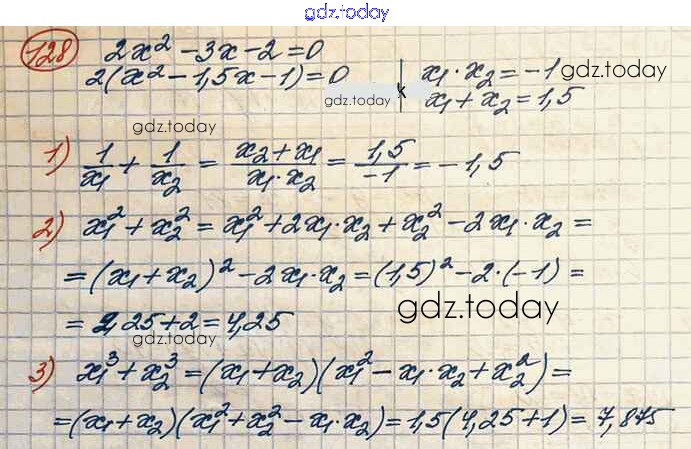 gdz.today
128 2x² - 3x - 2 = 0
2(x² - 1,5x - 1) = 0
x₁ · x₂ = -1 gdz.today
x₁ + x₂ = 1,5
gdz.today
gdz.today
1) 1/x₁ + 1/x₂ = (x₂ + x₁)/(x₁ · x₂) = 1,5/-1 = -1,5
2) x₁² + x₂² = x₁² + 2x₁ · x₂ + x₂² - 2x₁ · x₂ =
= (x₁ + x₂)² - 2x₁ · x₂ = (1,5)² - 2 · (-1) =
= 2,25 + 2 = 4,25
gdz.today
gdz.today
3) x₁³ + x₂³ = (x₁ + x₂)(x₁² - x₁ · x₂ + x₂²) =
= (x₁ + x₂)(x₁² + x₂² - x₁ · x₂) = 1,5(4,25 + 1) = 7,875